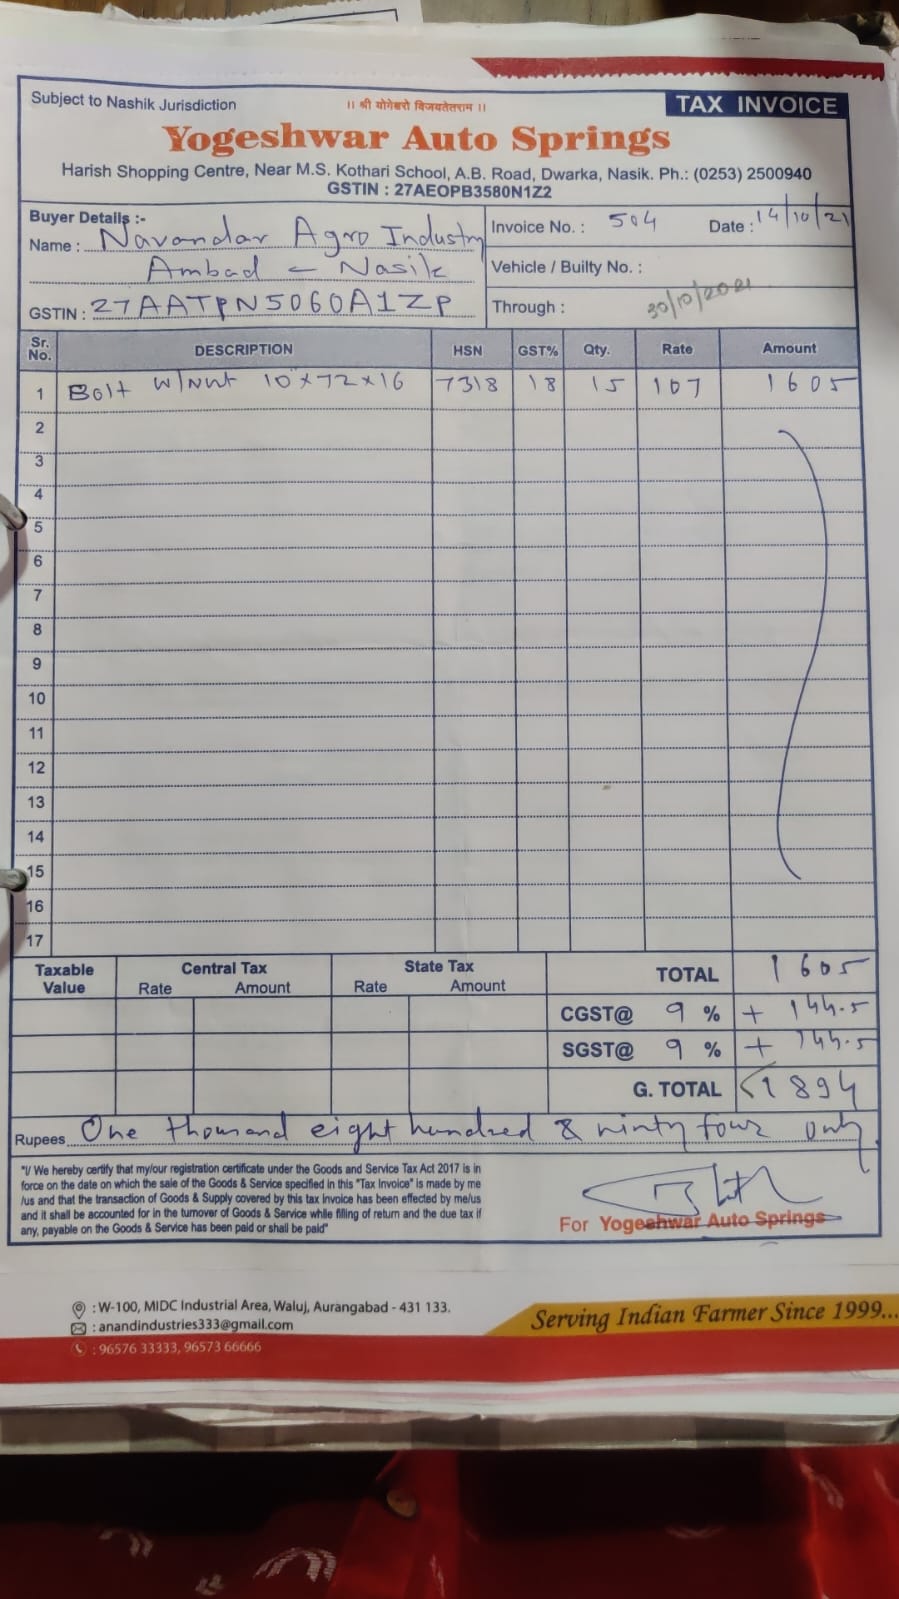 Subject to Nashik Jurisdiction
।। श्री योगेश्वरो विजयतेतराम ।।
TAX INVOICE
Yogeshwar Auto Springs
Harish Shopping Centre, Near M.S. Kothari School, A.B. Road, Dwarka, Nasik. Ph.: (0253) 2500940
GSTIN : 27AEOPB3580N1Z2
Buyer Details :-
Name : Navandar Agro Industry
Ambad - Nasik
GSTIN : 27AATPN5060A1ZP
Invoice No. : 504 Date : 14/10/21
Vehicle / Builty No. :
Through : 30/10/2021
Sr. No. DESCRIPTION HSN GST% Qty. Rate Amount
1 Bolt W/Nut 10"x72x16 7318 18 15 107 1605
2
3
4
5
6
7
8
9
10
11
12
13
14
15
16
17
Taxable Value Central Tax State Tax
Rate Amount Rate Amount
TOTAL 1605
CGST@ 9 % + 144.5
SGST@ 9 % + 144.5
G. TOTAL 1894
Rupees One thousand eight hundred & ninty four only
"I/ We hereby certify that my/our registration certificate under the Goods and Service Tax Act 2017 is in
force on the date on which the sale of the Goods & Service specified in this "Tax Invoice" is made by me
/us and that the transaction of Goods & Supply covered by this tax invoice has been effected by me/us
and it shall be accounted for in the turnover of Goods & Service while filling of return and the due tax if
any, payable on the Goods & Service has been paid or shall be paid"
For Yogeshwar Auto Springs
: W-100, MIDC Industrial Area, Waluj, Aurangabad - 431 133.
: anandindustries333@gmail.com
: 96576 33333, 96573 66666
Serving Indian Farmer Since 1999...